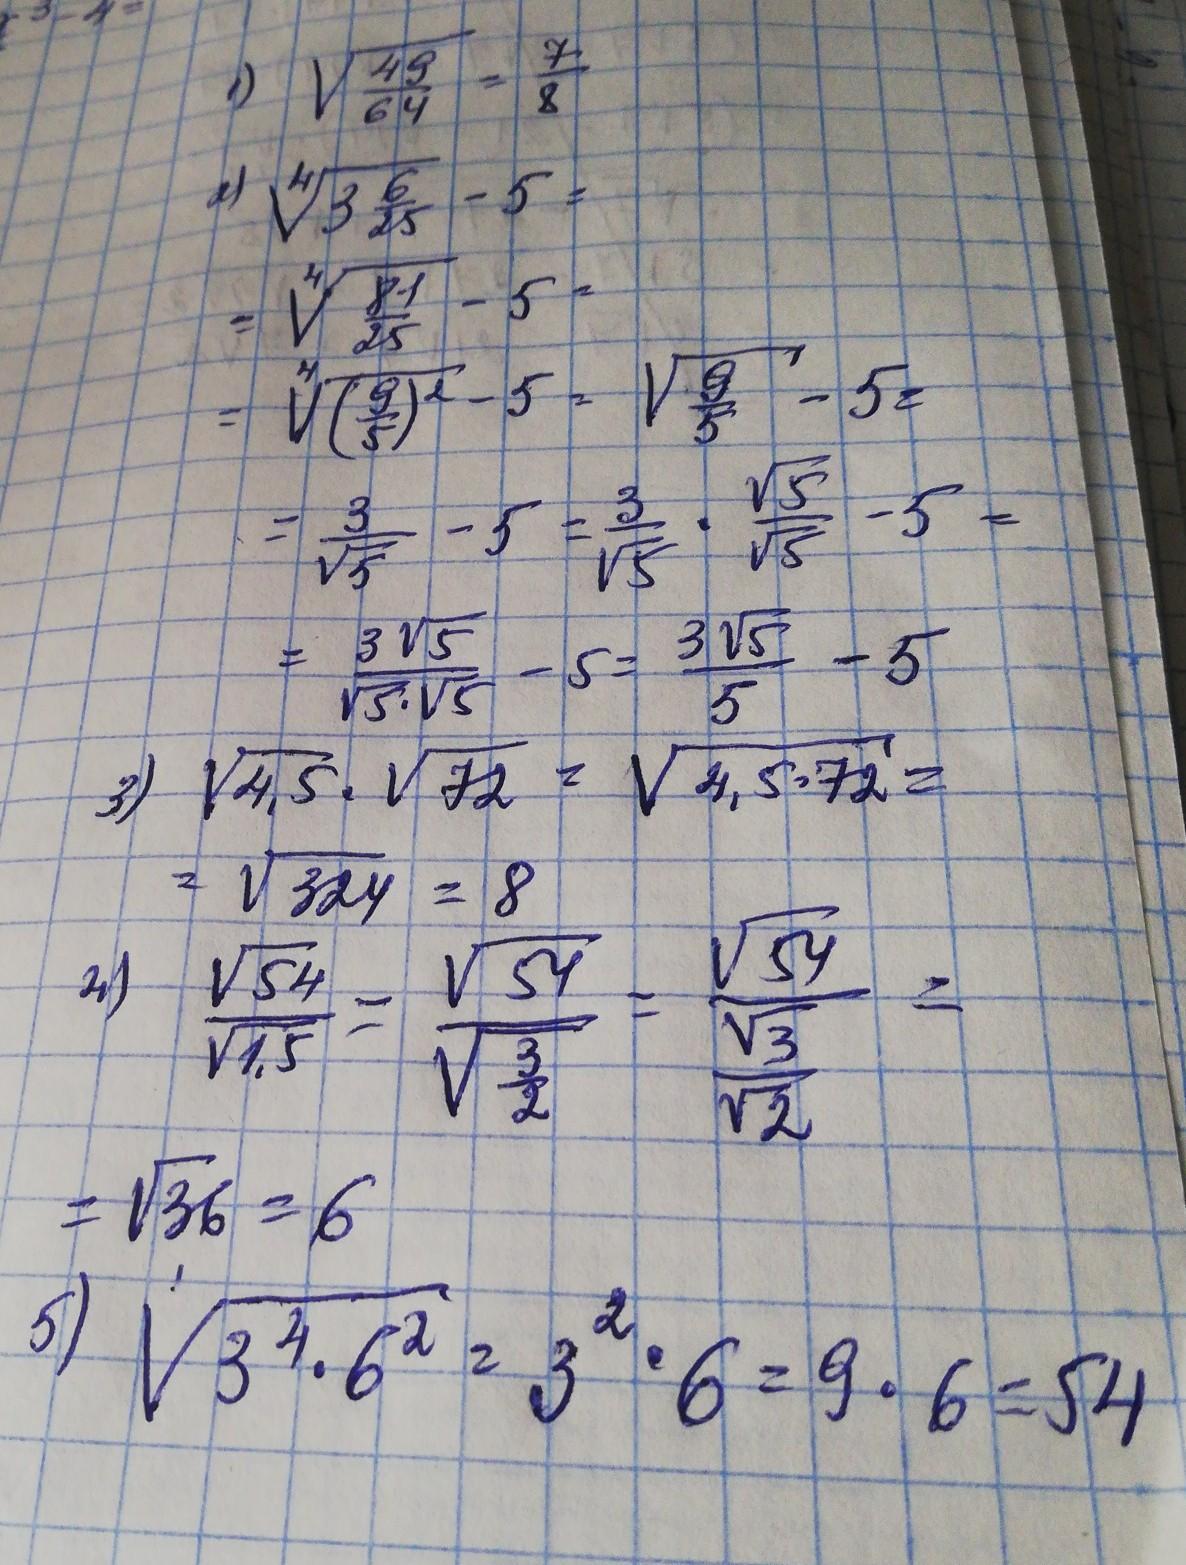 3 - 4 =
1) √(49/64) = 7/8
2) ⁴√(3 6/25) - 5 =
= ⁴√(81/25) - 5 =
= ⁴√((9/5)²) - 5 = √(9/5) - 5 =
= 3/√5 - 5 = 3/√5 · √5/√5 - 5 =
= 3√5/(√5·√5) - 5 = 3√5/5 - 5
3) √4,5 · √72 = √(4,5·72) =
= √324 = 8
4) √54/√1,5 = √54/√(3/2) = √54/(√3/√2) =
= √36 = 6
5) √(3⁴·6²) = 3²·6 = 9·6 = 54